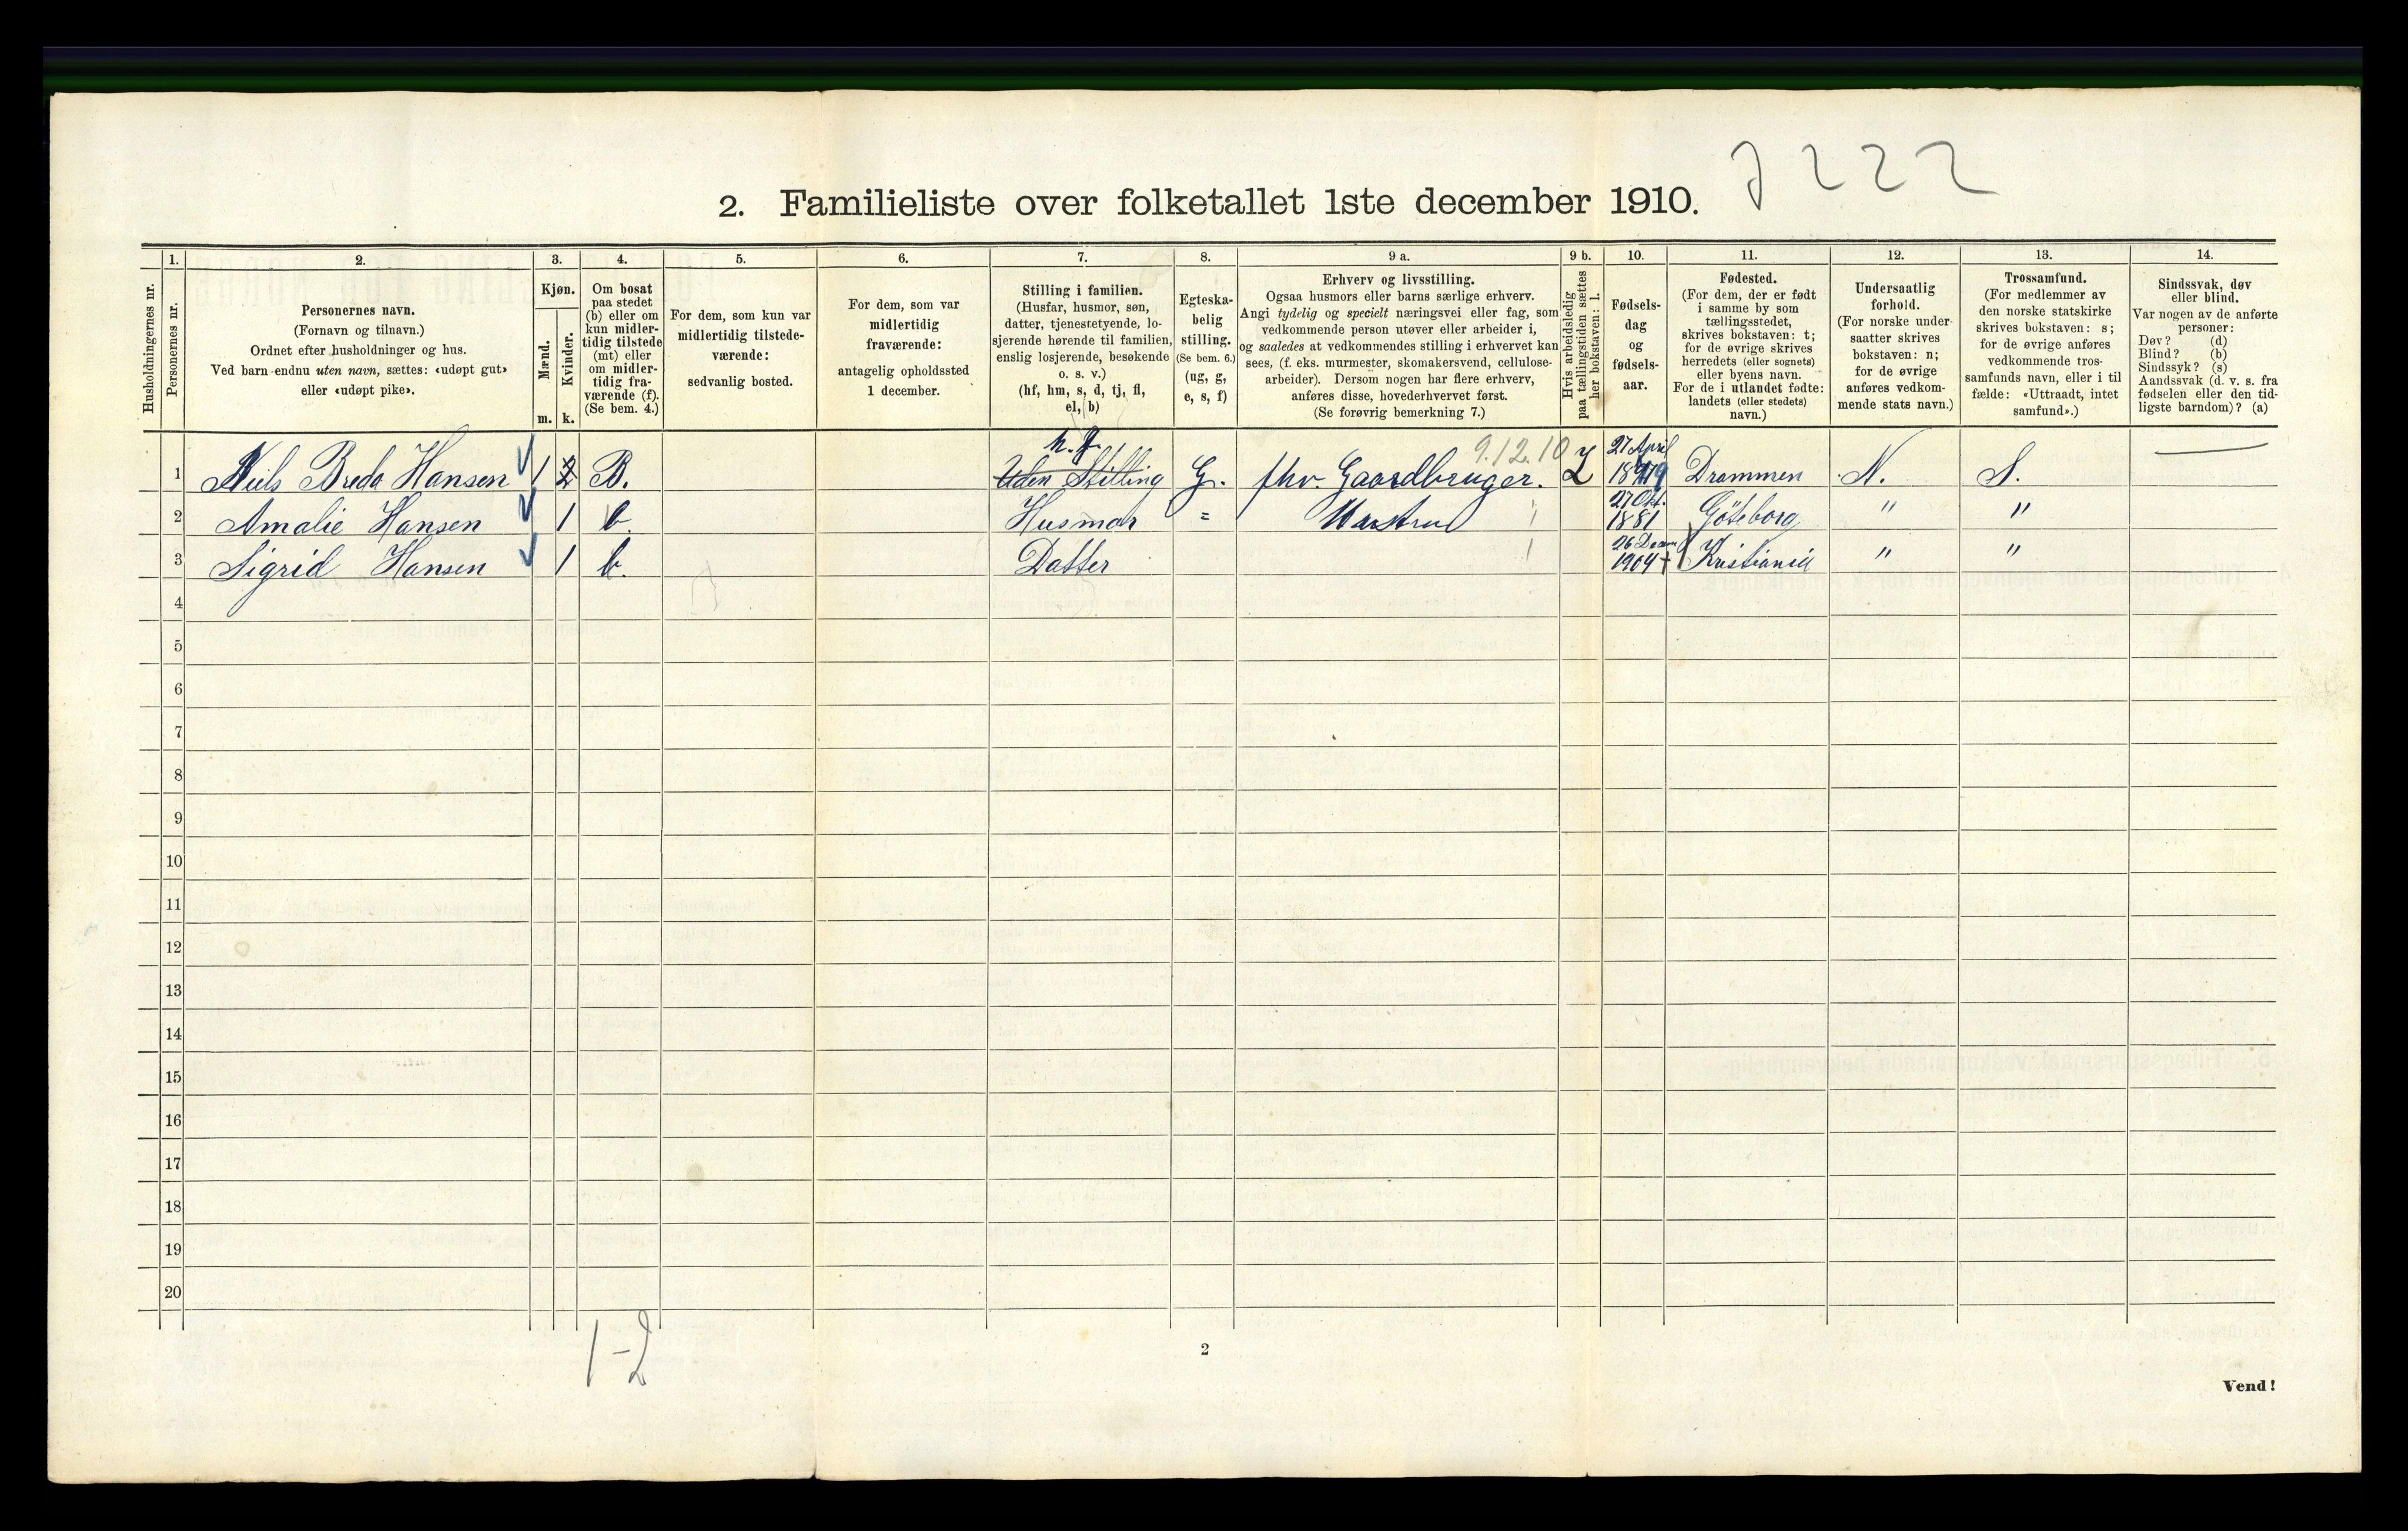 7222
2. Familieliste over folketallet 1ste december 1910.
Husholdningernes nr.
1.
Personernes nr.
2.
Personernes navn.
(Fornavn og tilnavn.)
Ordnet efter husholdninger og hus.
Ved barn endnu uten navn, sættes: «udøpt gut»
eller «udøpt pike».
3.
Kjøn.
Mænd.
Kvinder.
m. k.
4.
Om bosat
paa stedet
(b) eller om
kun midler-
tidig tilstede
(mt) eller
om midler-
tidig fra-
værende (f).
(Se bem. 4.)
5.
For dem, som kun var
midlertidig tilstede-
værende:
sedvanlig bosted.
6.
For dem, som var
midlertidig
fraværende:
antagelig opholdssted
1 december.
7.
Stilling i familien.
(Husfar, husmor, søn,
datter, tjenestetyende, lo-
sjerende hørende til familien,
enslig losjerende, besøkende
o. s. v.)
(hf, hm, s, d, tj, fl,
el, b)
8.
Egteska-
belig
stilling.
(Se bem. 6.)
(ug, g,
e, s, f)
9 a.
Erhverv og livsstilling.
Ogsaa husmors eller barns særlige erhverv.
Angi tydelig og specielt næringsvei eller fag, som
vedkommende person utøver eller arbeider i,
og saaledes at vedkommendes stilling i erhvervet kan
sees, (f. eks. murmester, skomakersvend, cellulose-
arbeider). Dersom nogen har flere erhverv,
anføres disse, hovederhvervet først.
(Se forøvrig bemerkning 7.)
9 b.
Hvis arbeidsledig
paa tællingstiden sættes
her bokstaven: l.
10.
Fødsels-
dag
og
fødsels-
aar.
11.
Fødested.
(For dem, der er født
i samme by som
tællingsstedet,
skrives bokstaven: t;
for de øvrige skrives
herredets (eller sognets)
eller byens navn.
For de i utlandet fødte:
landets (eller stedets)
navn.)
12.
Undersaatlig
forhold.
(For norske under-
saatter skrives
bokstaven: n;
for de øvrige
anføres vedkom-
mende stats navn.)
13.
Trossamfund.
(For medlemmer av
den norske statskirke
skrives bokstaven: s;
for de øvrige anføres
vedkommende tros-
samfunds navn, eller i til
fælde: «Uttraadt, intet
samfund».)
14.
Sindssvak, døv
eller blind.
Var nogen av de anførte
personer:
Døv? (d)
Blind? (b)
Sindssyk? (s)
Aandssvak (d. v. s. fra
fødselen eller den tid-
ligste barndom)? (a)
h.f. 9.12.10 27 April
1 Niels Breda Hansen 1 2 B. Uden Stilling G. fhv. Gaardbruger. Drammen N. S. —
27 Okt.
2 Amalie Hansen 1 b. Husmor = 1 1881 Göteborg " "
26 Decem
3 Sigrid Hansen 1 b. Datter 1 1904 + Kristiania " "
4
5
6
7
8
9
10
11
12
13
14
15
16
17
18
19
20
1-2
2
Vend!